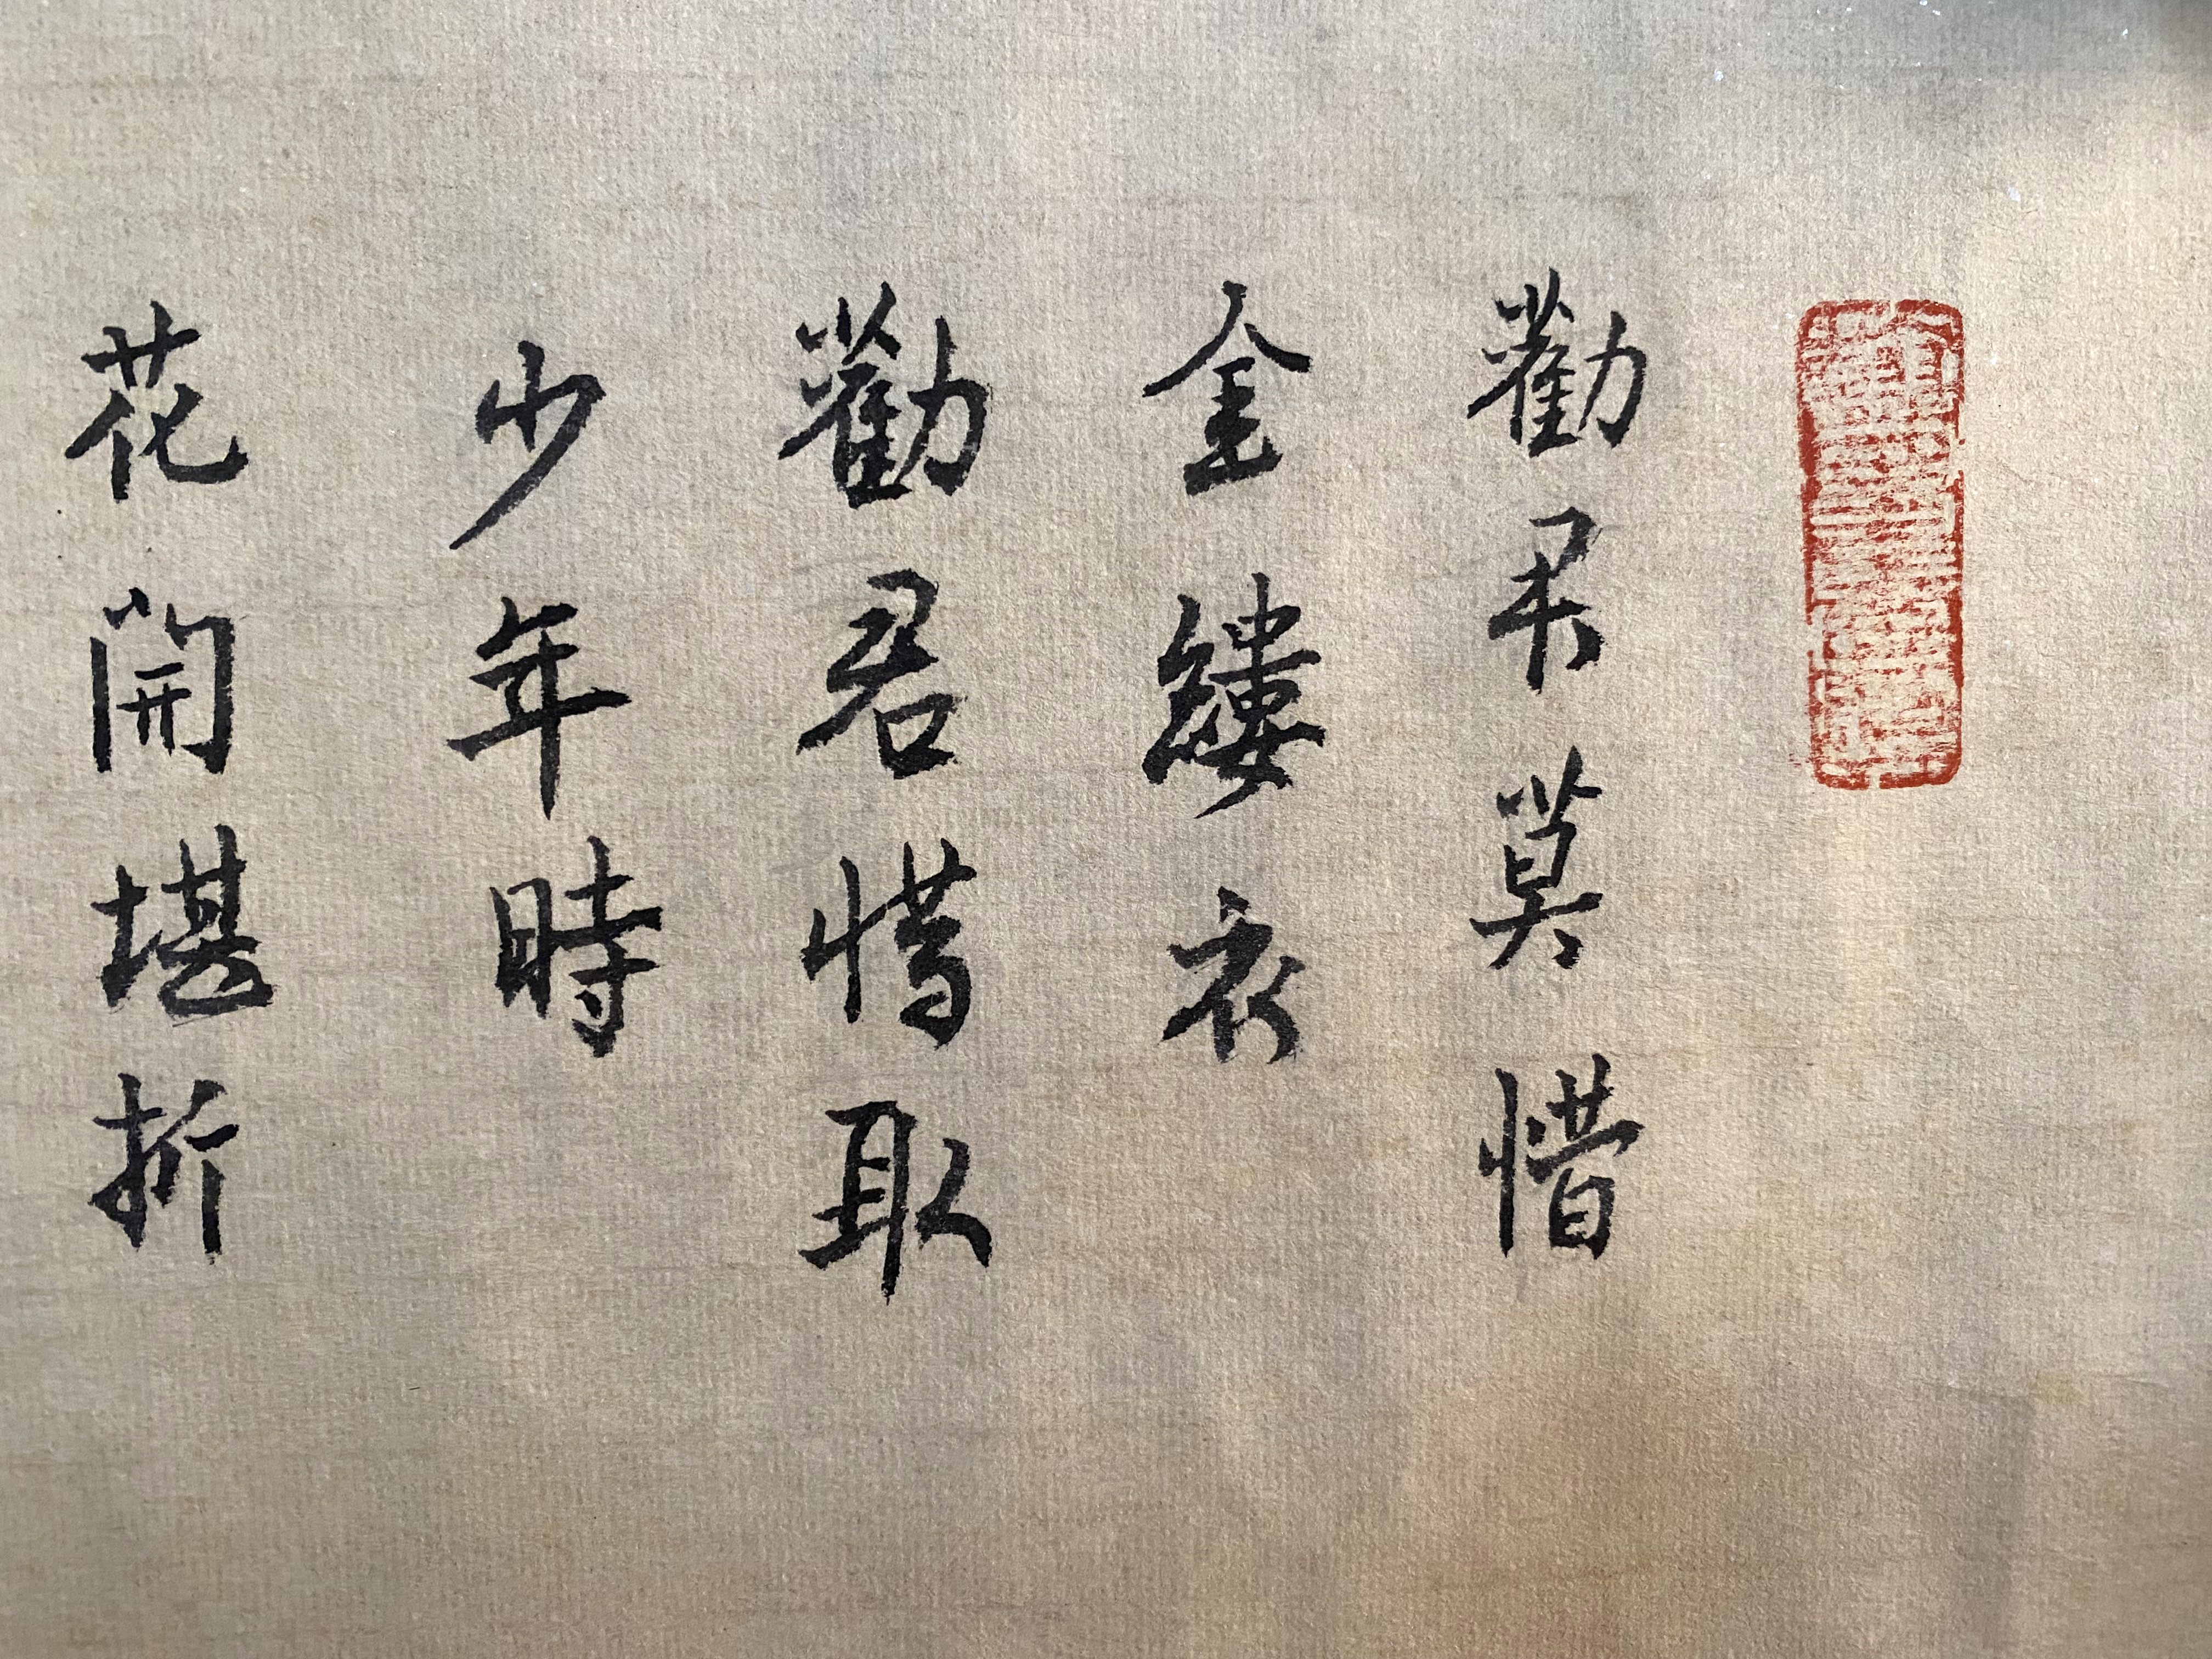 勸君莫惜
金縷衣
勸君惜取
少年時
花開堪折